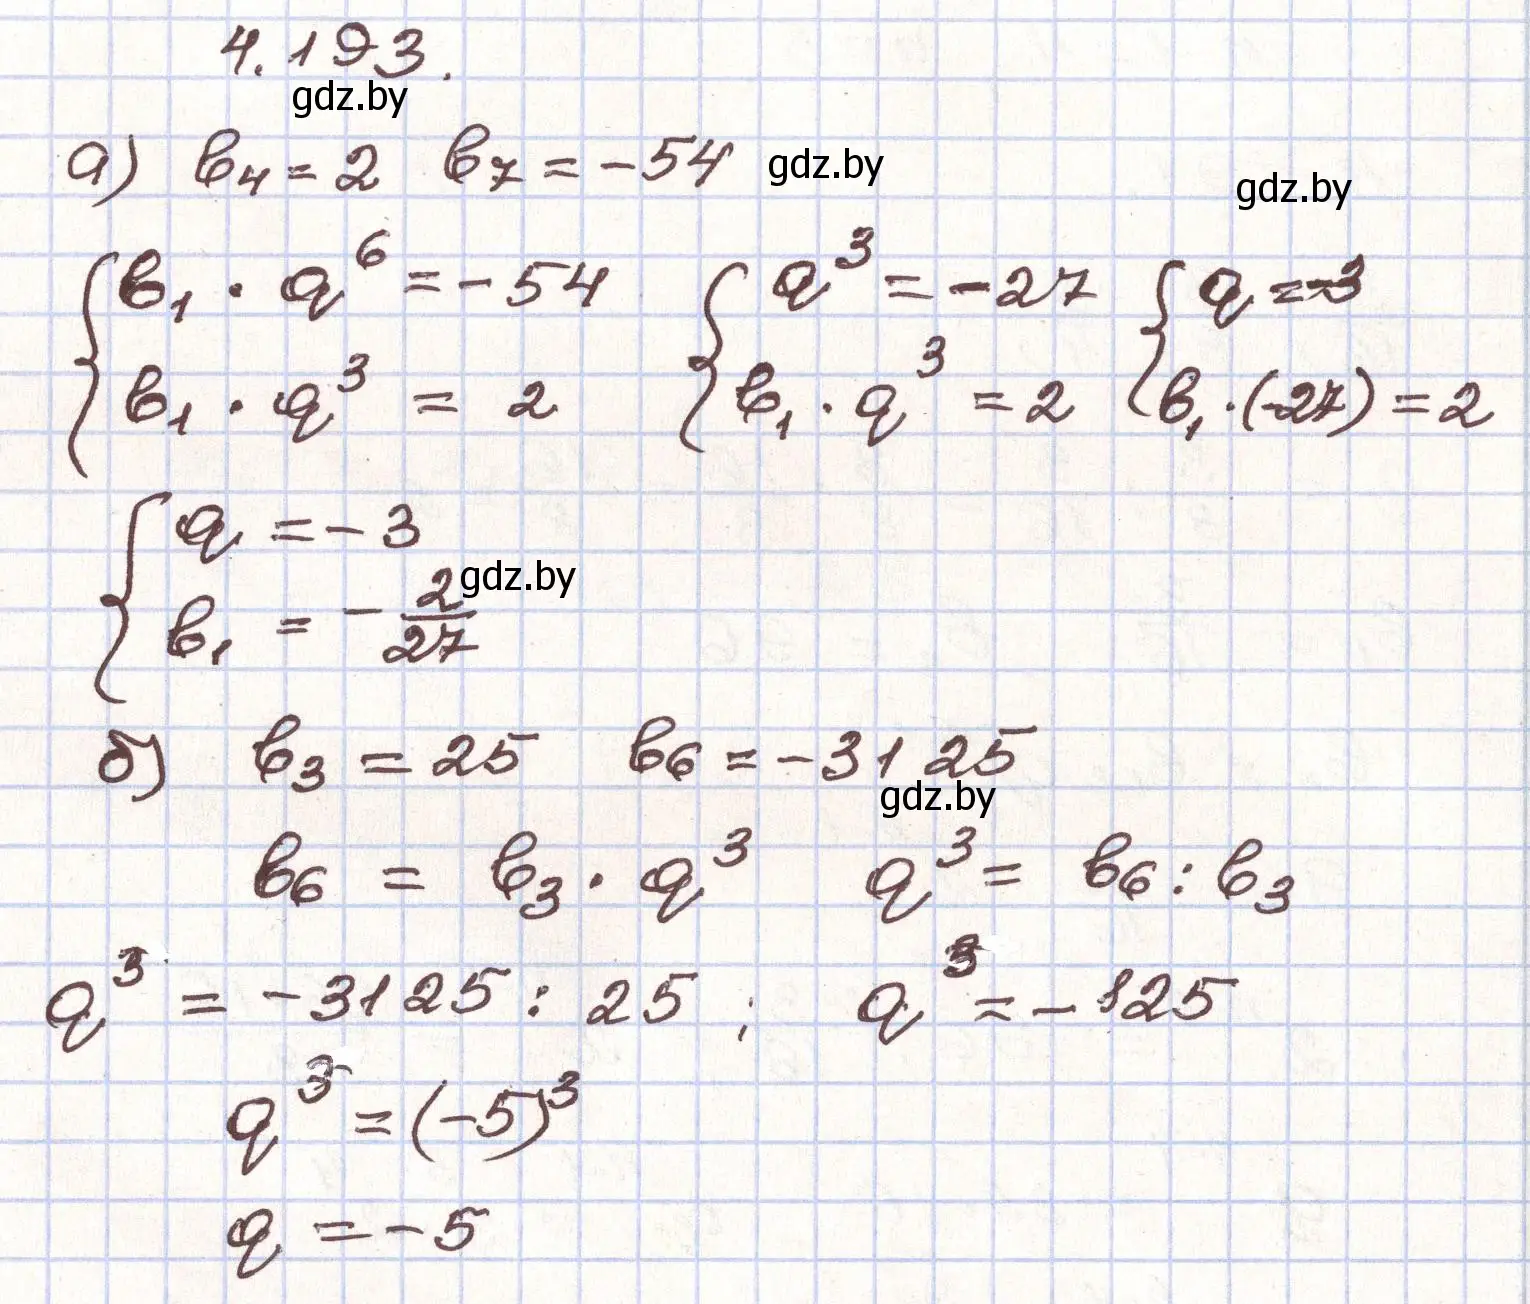 4.193.
gdz.by
а) b₄ = 2 b₇ = -54 gdz.by
gdz.by
{ b₁ · q⁶ = -54 { q³ = -27 { q = -3
b₁ · q³ = 2 b₁ · q³ = 2 b₁ · (-27) = 2
{ q = -3
gdz.by
b₁ = - 2/27
б) b₃ = 25 b₆ = -3125
gdz.by
b₆ = b₃ · q³ q³ = b₆ : b₃
q³ = -3125 : 25 ; q³ = -125
q³ = (-5)³
q = -5